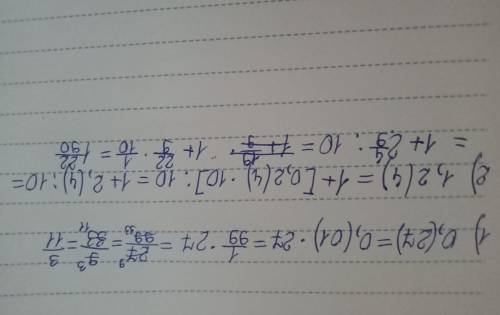 1) 0,(27)=0,(01)·27=1/99·27=27⁹/99₃₃=9³/33₁₁=3/11
2) 1,2(4)=1+[0,2(4)·10]:10=1+2,(4):10=
= 1+2 4/9:10= 1+22/9·1/10=1 22/90